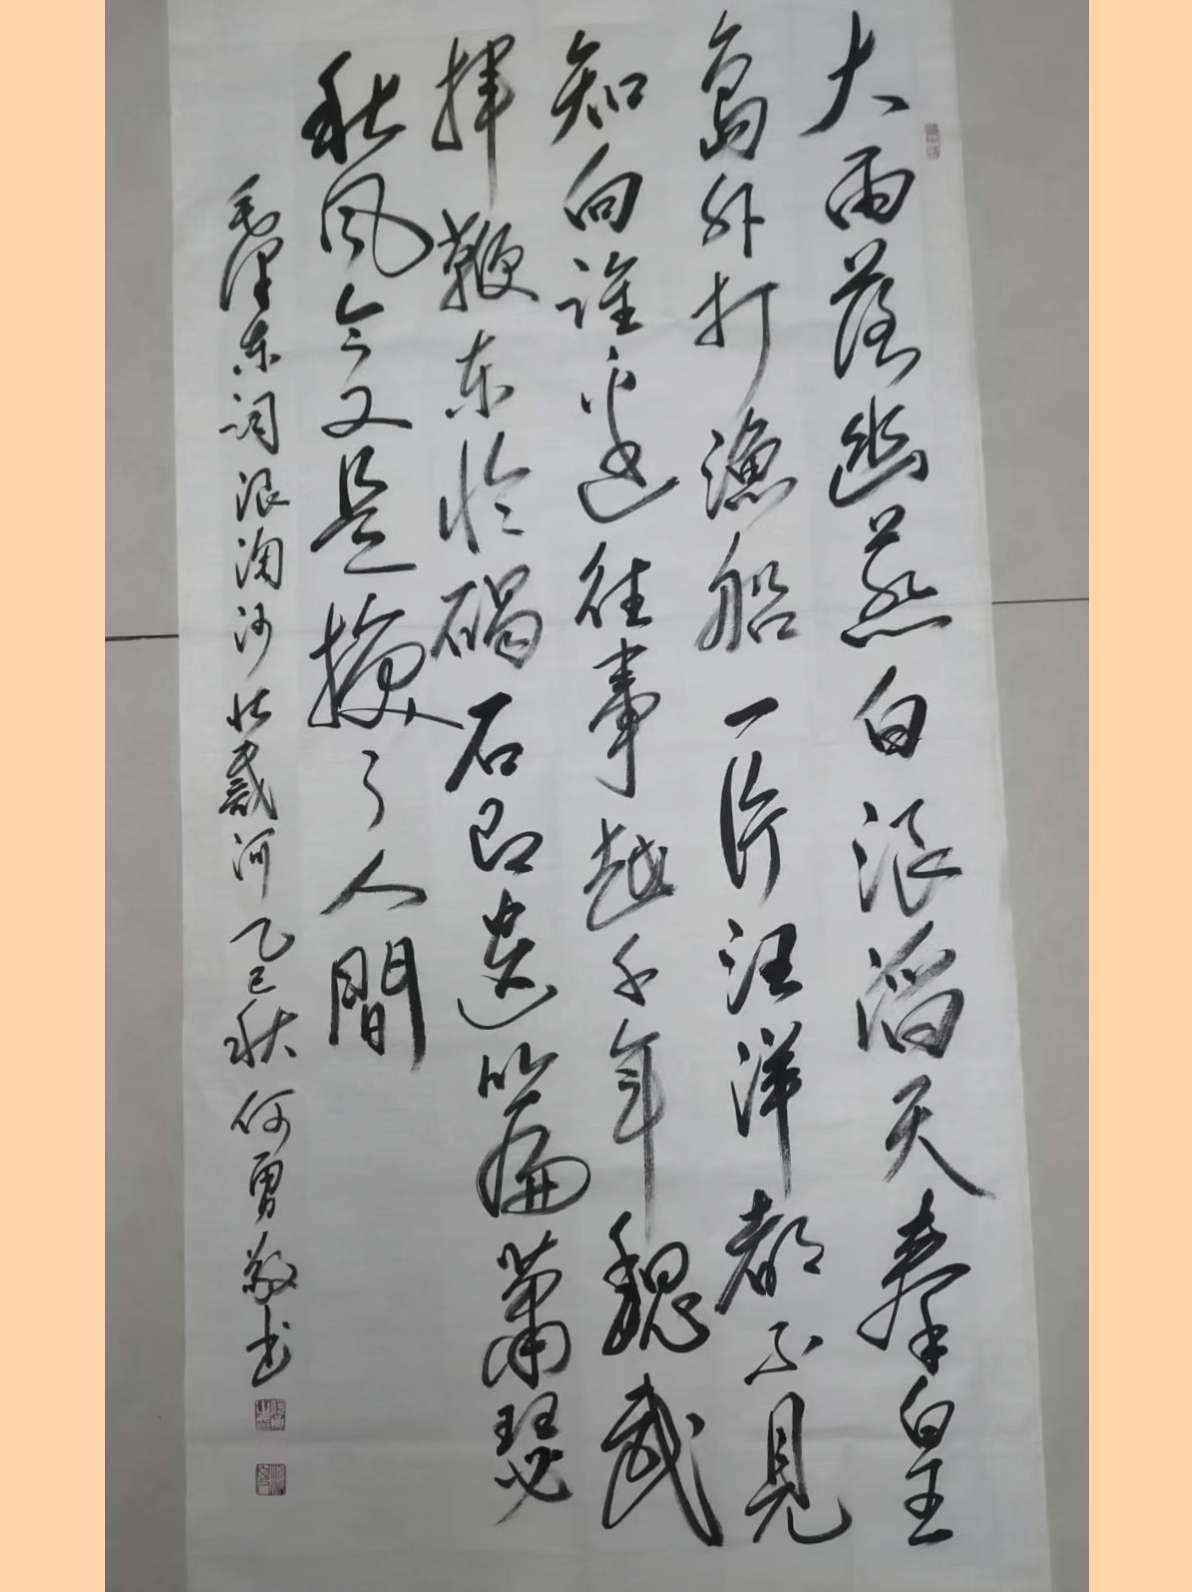 大雨落幽燕白浪滔天秦皇
島外打漁船一片汪洋都不見
知向誰邊往事越千年魏武
揮鞭東临碣石留遗篇萧瑟
秋风今又是换了人間
毛泽东词浪淘沙北戴河乙巳秋何勇敬书